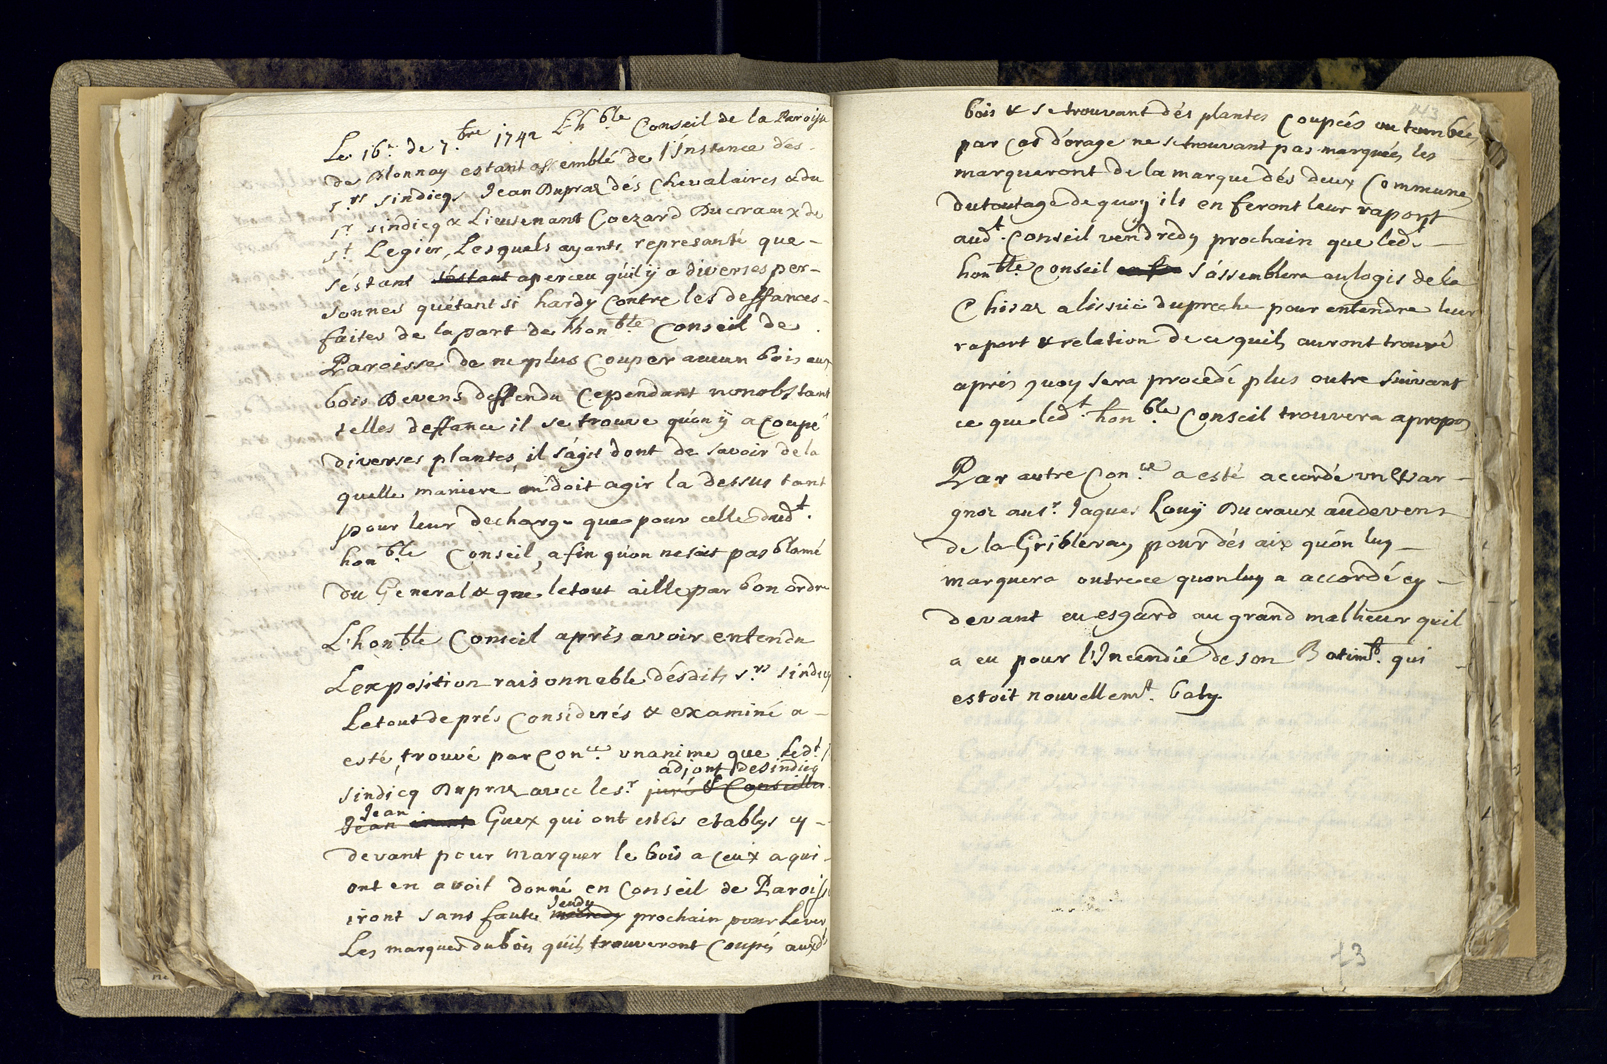 Le 16.e de 7.bre 1742 L'h.ble Conseil de la Paroisse
de Blonnay estant assemblé de l'Instance des
s.rs sindicqs Jean Dupraz dés Chevalaires & du
s.r sindicq & Lieutenant Coezard Ducraux de
s.t Legier, Lesquels ayants representé que
s'éstant s'éstant aperceu qu'il ÿ a diverses per-
sonnes qu'étant si hardy contre les deffances
faites de la part de l'hon.ble Conseil de
Paroisse de ne plus Couper aucun bois aux
bois Devens deffendu Cependant nonobstant
telles deffance il se trouve qu'on ÿ a coupé
diverses plantes, il s'agit dont de savoir de la
quelle maniere on doit agir la dessus tant
pour leur decharge que pour celle dud.t
hon.ble Conseil, afin qu'on ne soit pas blamé
du General & que le tout aille par bon ordre
L'hon.ble Conseil aprés avoir entendu
L'exposition raisonnable désdits s.rs sindicqs
Le tout de prés Considerés & examiné a
esté trouvé par Con.ce unanime que Led.t
adjont de sindicq
sindicq Dupraz avec le s.r juré & Conseiller
Jean
Jean Guex qui ont estés etablys cy-
devant pour marquer le bois a ceux a qui
ont en avoit donné en Conseil de Paroisse
Jeudy
iront sans faute prochain pour Lever
Les marques du bois qu'ils trouveront Coupés auxd.t
143
bois & se trouvant dés plantes Coupeés ou tombeés
par cas d'orage ne se trouvant pas marqueés les
marqueront de la marque dés deux Commune
du toutage de quoy ils en feront leur raport
aud.t Conseil vendredy prochain que led.t
hon.ble Conseil s'assemblera au logis de la
Chisaz a lissüe du preche pour entendre leur
raport & relation de ce quils auront trouvé
aprés quoy sera procedé plus outre suivant
ce que led.t hon.ble Conseil trouvera a propos
Par autre Con.ce a esté accordé un Char-
gnoz au s.r Jaques Louÿ Ducraux au devens
de la Gribleraz pour dés aix qu'on luy
marquera outre ce qu'on luy a accordé cy-
devant eu esgard au grand malheur qu'il
a eu pour l'Incendie de son Batim.t qui
estoit nouvellem.t baty